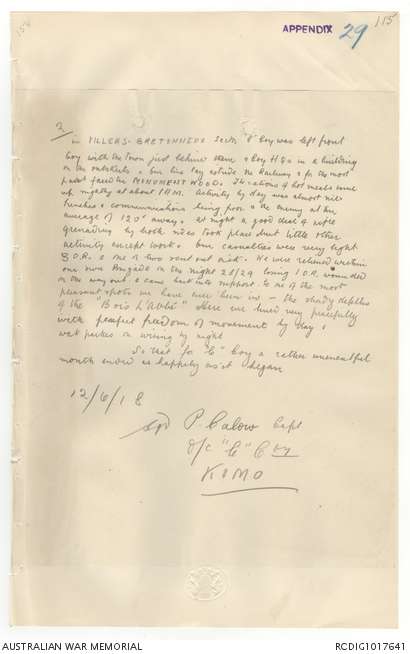 154
APPENDIX 29
115
2
in VILLERS-BRETONNEUX Sector "C" Coy was left front
Coy with the town just behind them & Coy HQs in a building
on the outskirts. Our line lay astride the Railway & for the most
part faced the MONUMENT WOOD. The rations & hot meals came
up nightly at about 1 AM. Activity by day was almost nil
trenches & communications being poor & the enemy at an
average of 120x away. At night a good deal of rifle
grenading by both sides took place but little other
activity except work. Our casualties were very light
3 O.R. & one or two sent out sick. We were relieved within
our own Brigade on the night 28/29 losing 1 O.R. wounded
on the way out & came back into support to one of the most
pleasant spots we have ever been in - the shady depths
of the "Bois L'Abbé" Here we lived very peacefully
with perfect freedom of movement by day &
parties on wiring by night
So that for "C" Coy a rather uneventful
month ended as happily as it began
12/6/18
sgd P. Calow Capt
O/c "C" Coy
KOMO
AUSTRALIAN WAR MEMORIAL
RCDIG1017641